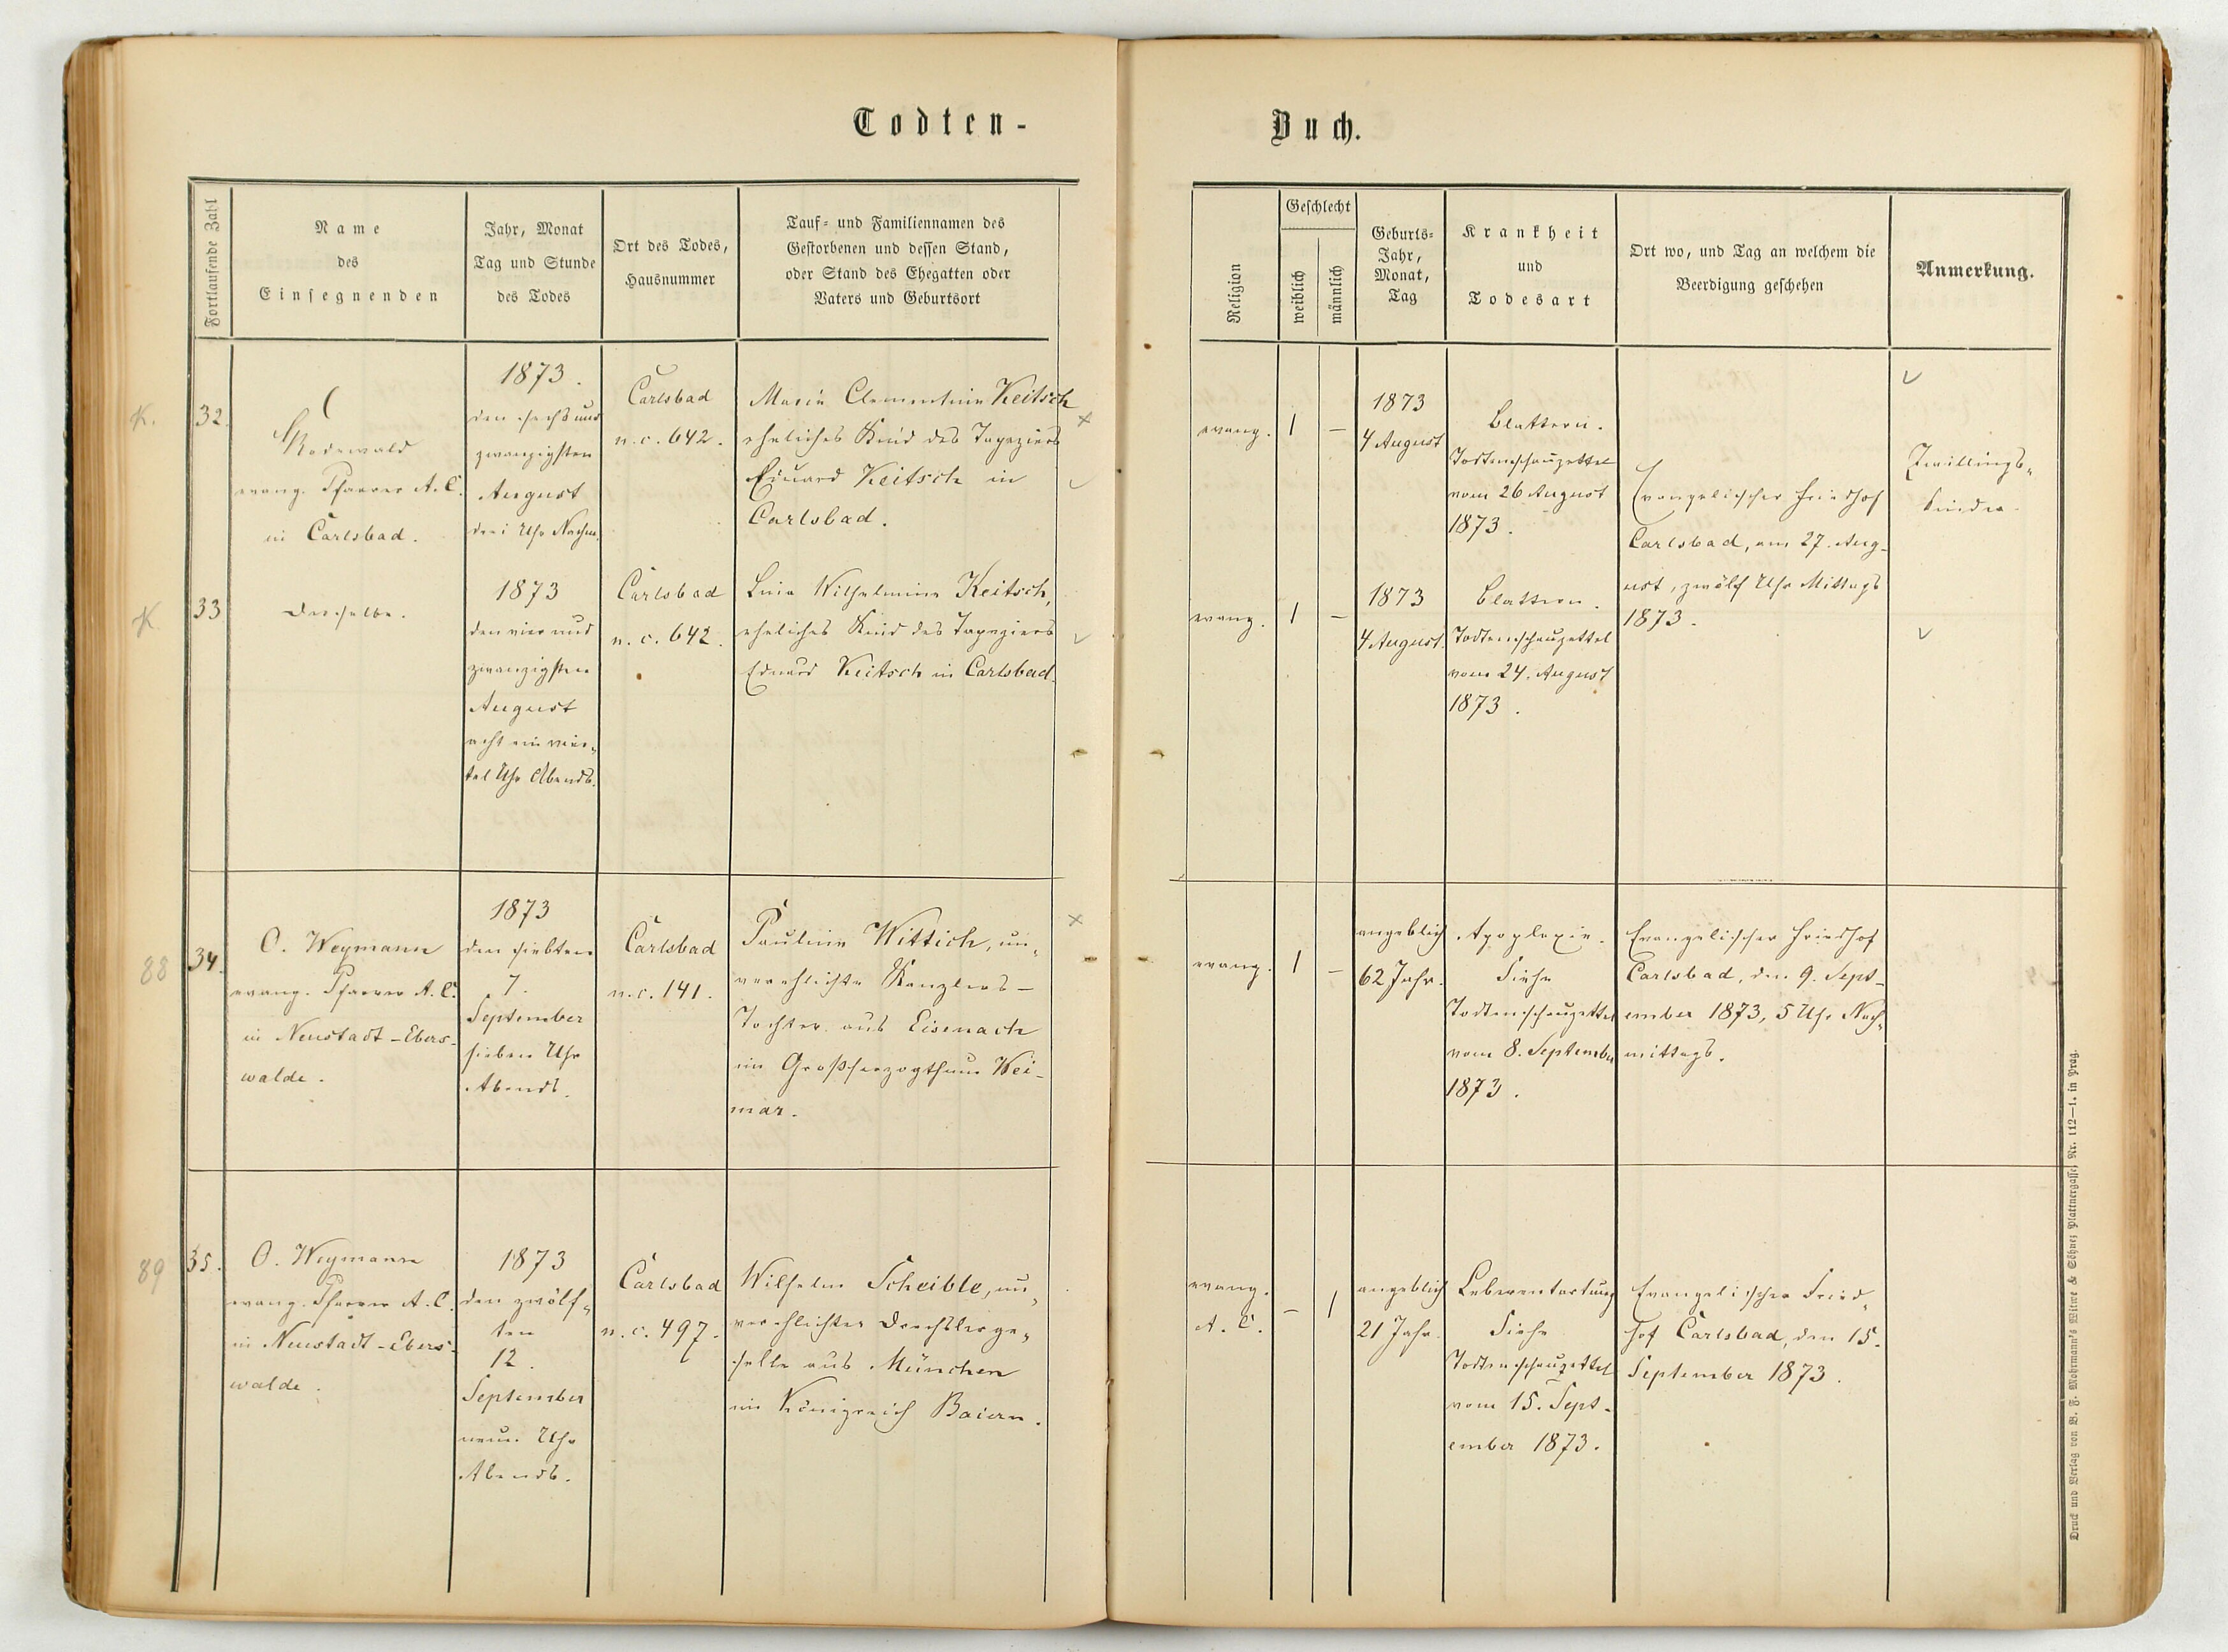 Todten-
Buch.
Fortlaufende Zahl
Name
des
Einsegnenden
Jahr, Monat
Tag und Stunde
des Todes
Ort des Todes,
Hausnummer
Tauf- und Familiennamen des
Gestorbenen und dessen Stand,
oder Stand des Ehegatten oder
Vaters und Geburtsort
Religion
Geschlecht
weiblich
männlich
Geburts-
Jahr,
Monat,
Tag
Krankheit
und
Todesart
Ort wo, und Tag an welchem die
Beerdigung geschehen
Anmerkung.
K.
32.
Rodewald
evang. Pfarrer A. C.
in Carlsbad.
1873.
den sechs und
zwanzigsten
August
drei Uhr Nachm.
Carlsbad
n. c. 642.
Marie Clementine Keitsch
eheliches Kind des Tapeziers
Eduard Keitsch in
Carlsbad.
evang.
1
–
1873
4 August
Blattern.
Todtenschauzettel
vom 26 August
1873.
Evangelischer Friedhof
Carlsbad, am 27. Aug-
ust, zwölf Uhr Mittags
1873.
Zwillings-
kinder.
K
33
Derselbe.
1873
den vier und
zwanzigsten
August
acht ein vier-
tel Uhr Abends.
Carlsbad
n. c. 642.
Lina Wilhelmine Keitsch,
eheliches Kind des Tapeziers
Eduard Keitsch in Carlsbad.
evang.
1
–
1873
4 August.
Blattern.
Todtenschauzettel
vom 24. August
1873.
88
34.
O. Weymann
evang. Pfarrer A. C.
in Neustadt-Ebers-
walde.
1873
den siebten
7.
September
sieben Uhr
Abends.
Carlsbad
n. c. 141.
Pauline Wittich, un-
verehlichte Kanzlers-
Tochter aus Eisenach
im Großherzogthum Wei-
mar.
evang.
1
–
angeblich
62 Jahr.
Apoplexie.
Siehe
Todtenschauzettel
vom 8. September
1873.
Evangelischer Friedhof
Carlsbad, den 9. Sept-
ember 1873, 5 Uhr Nach-
mittags.
89
35.
O. Weymann
evang. Pfarrer A. C.
in Neustadt-Ebers-
walde.
1873
den zwölf-
ten
12.
September
neun Uhr
Abends.
Carlsbad
n. c. 497.
Wilhelm Scheible, un-
verehlichter Drechslerge-
selle aus München
im Königreich Baiern.
evang.
A. C.
–
1
angeblich
21 Jahr.
Leberentartung
Siehe
Todtenschauzettel
vom 15. Sept-
ember 1873.
Evangelischer Fried-
hof Carlsbad, den 15.
September 1873.
Druck und Verlag von B. F. Mohrmann's Witwe & Söhne, Plattnergasse, Nr. 112—1. in Prag.